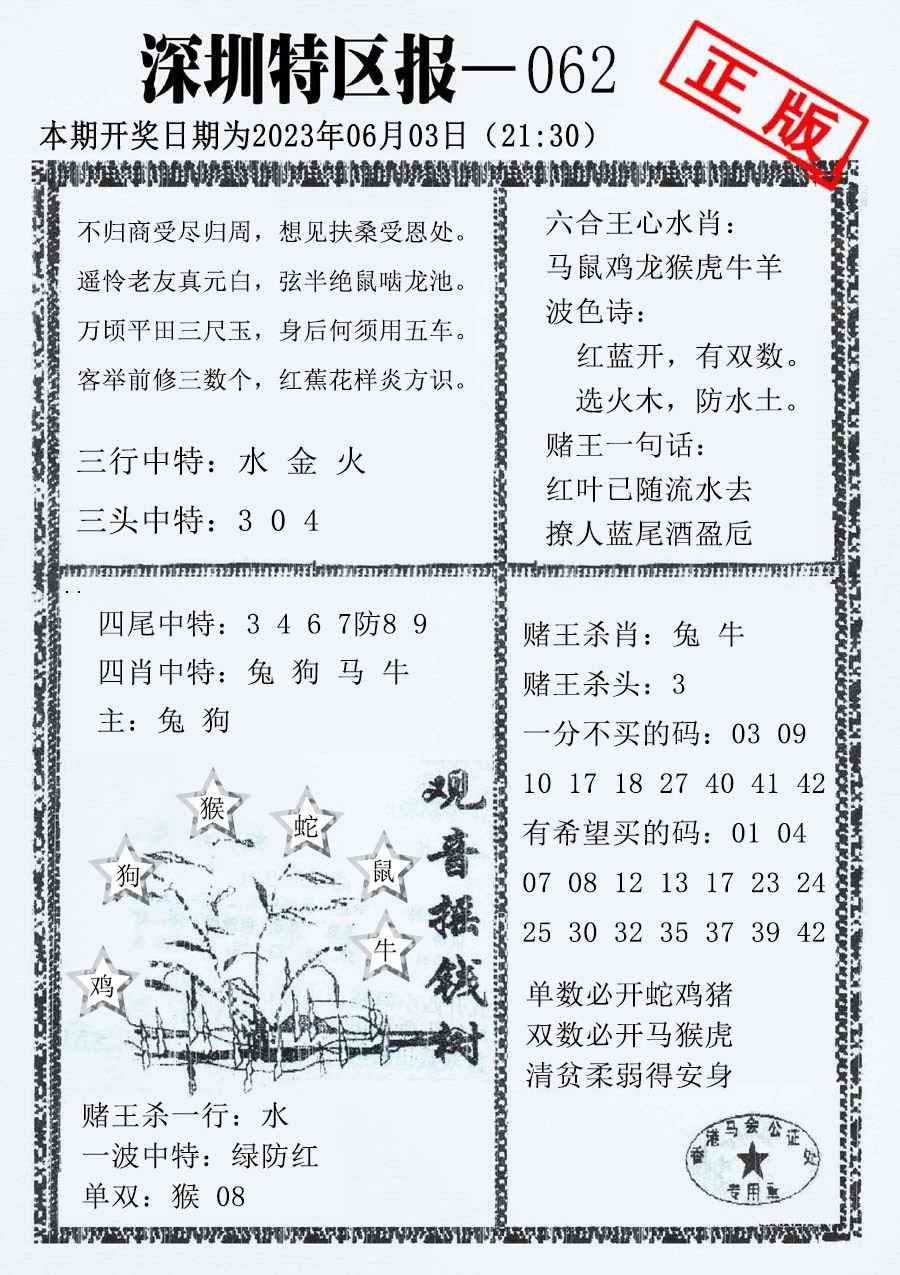 深圳特区报—062
正版
本期开奖日期为2023年06月03日（21:30）
不归商受尽归周，想见扶桑受恩处。
遥怜老友真元白，弦半绝鼠啮龙池。
万顷平田三尺玉，身后何须用五车。
客举前修三数个，红蕉花样炎方识。
三行中特：水 金 火
三头中特：3 0 4
六合王心水肖：
马鼠鸡龙猴虎牛羊
波色诗：
红蓝开，有双数。
选火木，防水土。
赌王一句话：
红叶已随流水去
撩人蓝尾酒盈卮
四尾中特：3 4 6 7防8 9
四肖中特：兔 狗 马 牛
主：兔 狗
猴
蛇
狗
鼠
牛
鸡
观音摇钱树
赌王杀一行：水
一波中特：绿防红
单双：猴 08
赌王杀肖：兔 牛
赌王杀头：3
一分不买的码：03 09
10 17 18 27 40 41 42
有希望买的码：01 04
07 08 12 13 17 23 24
25 30 32 35 37 39 42
单数必开蛇鸡猪
双数必开马猴虎
清贫柔弱得安身
香港马会公证处
专用章